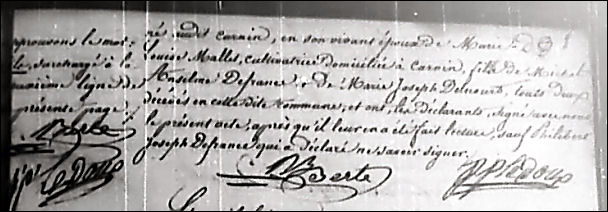 né audit carnin, en son vivant époux de Marie
Louise Mallet, cultivatrice domiciliée à Carnin, fils de
Anselme Defrance & de Marie Joseph Delcourt, touts deux
décédés en cette dite commune, et ont, les déclarants, signé avec nous
le présent acte, après qu'il leur en a été fait lecture, sauf Philibert
Joseph Defrance qui a déclaré ne savoir signer.
approuvons le mot
surchargé à la
ligne de
présente page
Berte
Ledoux
Berte
Ledoux